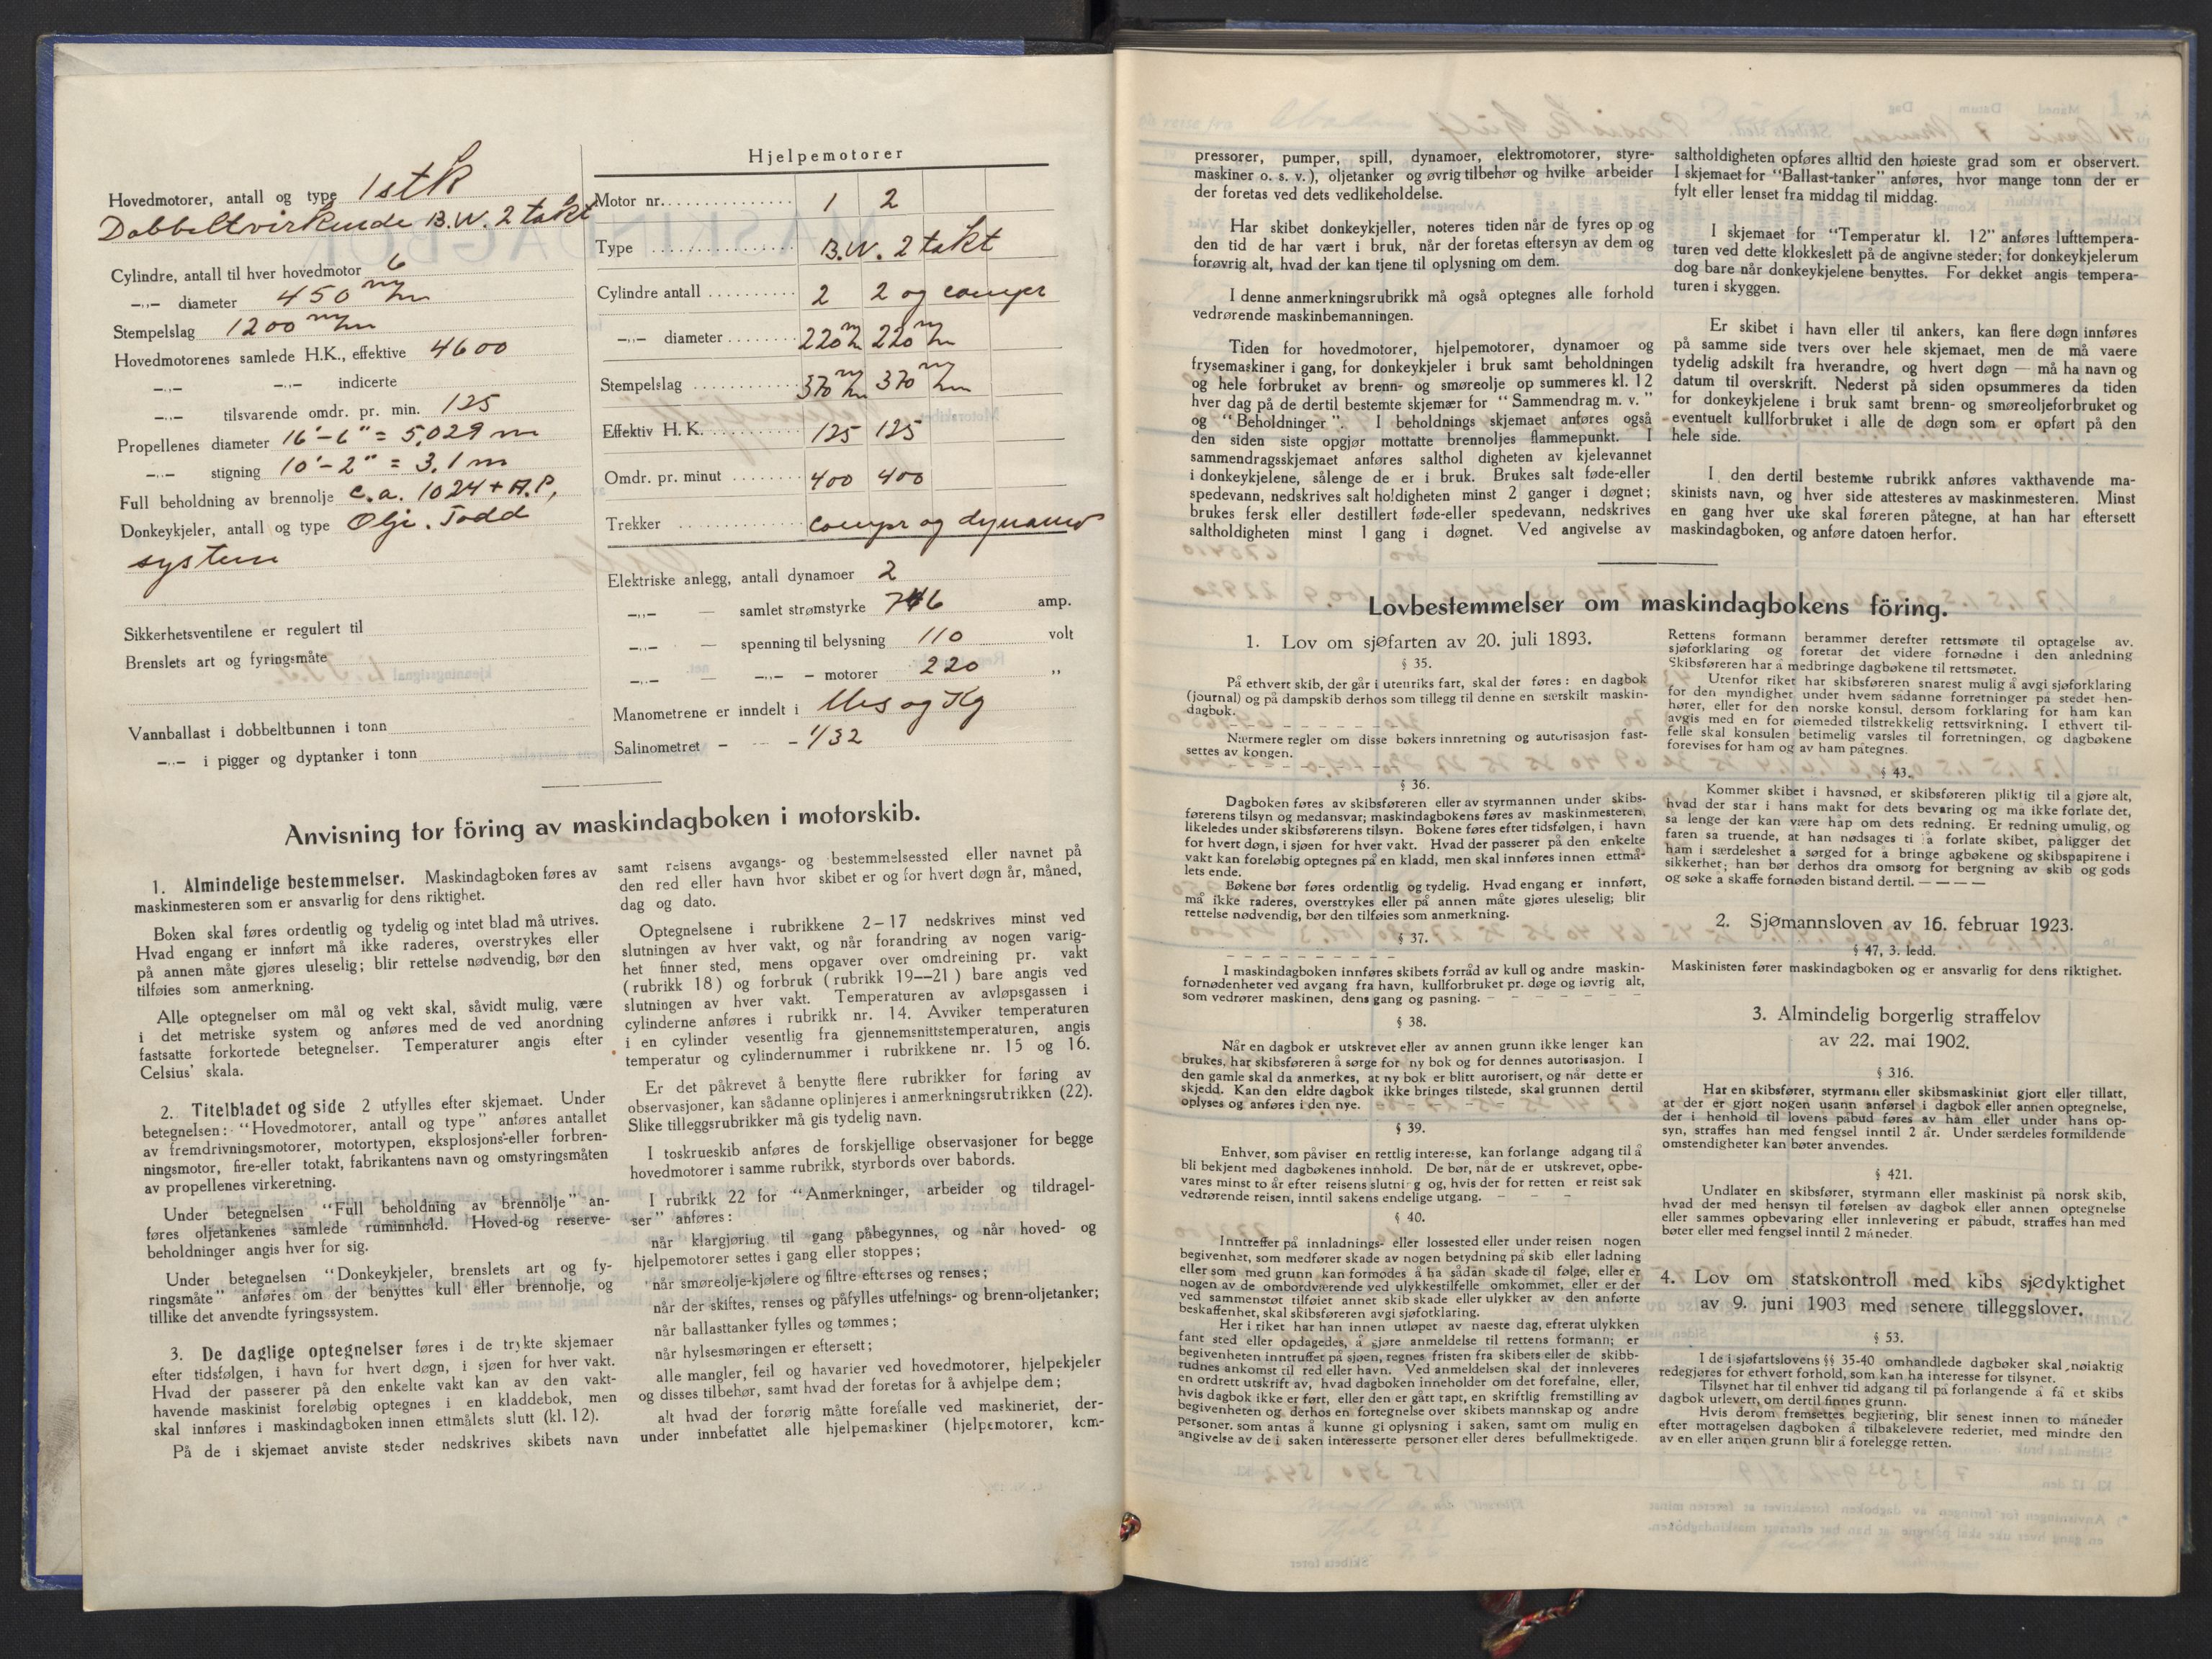 Hovedmotorer, antall og type 1 stk
Dobbeltvirkende B.W. 2 takt
Cylindre, antall til hver hovedmotor 6
–„– diameter 450 m/m
Stempelslag 1200 m/m
Hovedmotorenes samlede H.K., effektive 4600
–„– –„– indicerte
–„– tilsvarende omdr. pr. min. 125
Propellenes diameter 16'-6" = 5,029 m
–„– stigning 10'-2" = 3.1 m
Full beholdning av brennolje c.a. 1024 + A.P.
Donkeykjeler, antall og type Olje. Todd
system
Sikkerhetsventilene er regulert til
Brenslets art og fyringsmåte
Vannballast i dobbeltbunnen i tonn
–„– i pigger og dyptanker i tonn
Hjelpemotorer
Motor nr. 1 2
Type B.W. 2 takt
Cylindre antall 2 2 og compr
–„– diameter 220 m/m 220 m/m
Stempelslag 370 m/m 370 m/m
Effektiv H.K. 125 125
Omdr. pr. minut 400 400
Trekker compr og dynamo
Elektriske anlegg, antall dynamoer 2
–„– — samlet strømstyrke 746 amp.
–„– — spenning til belysning 110 volt
–„– — –„– – motorer 220 „
Manometrene er inndelt i lbs og Kg
Salinometret – — – 1/32
Anvisning for föring av maskindagboken i motorskib.
1. Almindelige bestemmelser. Maskindagboken føres av
maskinmesteren som er ansvarlig for dens riktighet.
Boken skal føres ordentlig og tydelig og intet blad må utrives.
Hvad engang er innført må ikke raderes, overstrykes eller
på annen måte gjøres uleselig; blir rettelse nødvendig, bør den
tilføies som anmerkning.
Alle optegnelser om mål og vekt skal, såvidt mulig, være
i det metriske system og anføres med de ved anordning
fastsatte forkortede betegnelser. Temperaturer angis efter
Celsius' skala.
2. Titelbladet og side 2 utfylles efter skjemaet. Under
betegnelsen: “Hovedmotorer, antall og type” anføres antallet
av fremdrivningsmotorer, motortypen, eksplosjons-eller forbren-
ningsmotor, fire-eller totakt, fabrikantens navn og omstyringsmåten
av propellenes virkeretning.
Under betegnelsen “Full beholdning av brennolje” an-
føres oljetankenes samlede ruminnhold. Hoved-og reserve-
beholdninger angis hver for sig.
Under betegnelsen “Donkeykjeler, brenslets art og fy-
ringsmåte” anføres om der benyttes kull eller brennolje, og
tillike det anvendte fyringssystem.
3. De daglige optegnelser føres i de trykte skjemaer
efter tidsfølgen, i havn for hvert døgn, i sjøen for hver vakt.
Hvad der passerer på den enkelte vakt kan av den vakt-
havende maskinist foreløbig optegnes i en kladdebok, men
skal innføres i maskindagboken innen ettmålets slutt (kl. 12).
På de i skjemaet anviste steder nedskrives skibets navn
samt reisens avgangs- og bestemmelsessted eller navnet på
den red eller havn hvor skibet er og for hvert døgn år, måned,
dag og dato.
Optegnelsene i rubrikkene 2–17 nedskrives minst ved
slutningen av hver vakt, og når forandring av nogen varig-
het finner sted, mens opgaver over omdreining pr. vakt
(rubrikk 18) og forbruk (rubrikk 19—21) bare angis ved
slutningen av hver vakt. Temperaturen av avløpsgassen i
cylinderne anføres i rubrikk nr. 14. Avviker temperaturen
i en cylinder vesentlig fra gjennemsnittstemperaturen, angis
temperatur og cylindernummer i rubrikkene nr. 15 og 16.
Er det påkrevet å benytte flere rubrikker for føring av
observasjoner, kan sådanne oplinjeres i anmerkningsrubrikken (22).
Slike tilleggsrubrikker må gis tydelig navn.
I toskrueskib anføres de forskjellige observasjoner for begge
hovedmotorer i samme rubrikk, styrbords over babords.
I rubrikk 22 for “Anmerkninger, arbeider og tildragel-
ser” anføres:
når klargjøring til gang påbegynnes, og når hoved- og
hjelpemotorer settes i gang eller stoppes;
når smøreolje-kjølere og filtre efterses og renses;
når der skiftes, renses og påfylles utfelnings- og brenn-oljetanker;
når ballasttanker fylles og tømmes;
når hylsesmøringen er eftersett;
alle mangler, feil og havarier ved hovedmotorer, hjelpekjeler
og disses tilbehør, samt hvad der foretas for å avhjelpe dem;
alt hvad der forørig måtte forefalle ved maskineriet, der-
under innbefattet alle hjelpemaskiner (hjelpemotorer, kom-
pressorer, pumper, spill, dynamoer, elektromotorer, styre-
maskiner o. s. v.), oljetanker og øvrig tilbehør og hvilke arbeider
der foretas ved dets vedlikeholdelse.
Har skibet donkeykjeller, noteres tiden når de fyres op og
den tid de har vært i bruk, når der foretas eftersyn av dem og
forøvrig alt, hvad der kan tjene til oplysning om dem.
I denne anmerkningsrubrikk må også optegnes alle forhold
vedrørende maskinbemanningen.
Tiden for hovedmotorer, hjelpemotorer, dynamoer og
frysemaskiner i gang, for donkeykjeler i bruk samt beholdningen
og hele forbruket av brenn- og smøreolje op summeres kl. 12
hver dag på de dertil bestemte skjemær for “Sammendrag m. v.”
og “Beholdninger”. I beholdnings skjemaet anføres også
den siden siste opgjør mottatte brennoljes flammepunkt. I
sammendragsskjemaet anføres salthol digheten av kjelevannet
i donkeykjelene, sålenge de er i bruk. Brukes salt føde-eller
spedevann, nedskrives salt holdigheten minst 2 ganger i døgnet;
brukes fersk eller destillert føde-eller spedevann, nedskrives
saltholdigheten minst 1 gang i døgnet. Ved angivelse av
saltholdigheten opføres alltid den høieste grad som er observert.
I skjemaet for “Ballast-tanker” anføres, hvor mange tonn der er
fylt eller lenset fra middag til middag.
I skjemaet for “Temperatur kl. 12” anføres lufttempera-
turen ved dette klokkeslett på de angivne steder; for donkeykjelerum
dog bare når donkeykjelene benyttes. For dekket angis tempera-
turen i skyggen.
Er skibet i havn eller til ankers, kan flere døgn innføres
på samme side tvers over hele skjemaet, men de må vaere
tydelig adskilt fra hverandre, og hvert døgn — må ha navn og
datum til overskrift. Nederst på siden opsummeres da tiden
for donkeykjelene i bruk samt brenn- og smøreoljeforbruket og
eventuelt kullforbruket i alle de døgn som er opført på den
hele side.
I den dertil bestemte rubrikk anføres vakthavende ma-
skinists navn, og hver side attesteres av maskinmesteren. Minst
en gang hver uke skal føreren påtegne, at han har eftersett
maskindagboken, og anføre datoen herfor.
Lovbestemmelser om maskindagbokens föring.
1. Lov om sjøfarten av 20. juli 1893.
§ 35.
På ethvert skib, der går i utenriks fart, skal der føres: en dagbok
(journal) og på dampskib derhos som tillegg til denne en særskilt maskin-
dagbok.
Nærmere regler om disse bøkers innretning og autorisasjon fast-
settes av kongen.
§ 36.
Dagboken føres av skibsføreren eller av styrmannen under skibs-
førerens tilsyn og medansvar; maskindagbokens føres av maskinmesteren,
likeledes under skibsførerens tilsyn. Bokene føres efter tidsfølgen, i havn
for hvert døgn, i sjøen for hver vakt. Hvad der passerer på den enkelte
vakt kan foreløbig optegnes på en kladd, men skal innføres innen ettmå-
lets ende.
Bøkene bør føres ordentlig og tydelig. Hvad engang er innført,
må ikke raderes, overstrykes eller på annen måte gjøres uleselig; blir
rettelse nødvendig, bør den tilføies som anmerkning.
§ 37.
I maskindagboken innføres skibets forråd av kull og andre maskin-
fornødenheter ved avgang fra havn, kullforbruket pr. døge og iøvrig alt,
som vedrører maskinen, dens gang og pasning.
§ 38.
Når en dagbok er utskrevet eller av annen grunn ikke lenger kan
brukes, har skibsføreren å sørge for ny bok og for dennes autorisasjon. I
den gamle skal da anmerkes, at ny bok er blitt autorisert, og når dette er
skjedd. Kan den eldre dagbok ikke bringes tilstede, skal grunnen dertil
oplyses og anføres i den nye.
§ 39.
Enhver, som påviser en rettlig interesse, kan forlange adgang til å
bli bekjent med dagbøkenes innhold. De bør, når de er utskrevet, opbe-
vares minst to år efter reisens slutni g og, hvis der for retten er reist sak
vedrørende reisen, inntil sakens endelige utgang.
§ 40.
Inntreffer på innladnings- eller lossested eller under reisen nogen
begivenhet, som medfører skade av nogen betydning på skib eller ladning
eller som med grunn kan formodes å ha sådan skade til følge, eller er
nogen av de ombordværende ved ulykkestilfelle omkommet, eller er der
ved sammenstøt tilføiet annet skib skade eller ulykker av den anførte
beskaffenhet, skal skibsføreren avgi sjøforklaring.
Her i riket har han innen utløpet av naeste dag, efterat ulykken
fant sted eller opdagedes, å gjøre anmeldelse til rettens formann; er
begivenheten inntruffet på sjøen, regnes fristen fra skibets eller de skibb-
rudnes ankomst til red eller havn. Ved anmeldelsen skal der innleveres
en ordrett utskrift av, hvad dagboken inneholder om det forefalne, eller,
hvis dagbok ikke er ført, eller den er gått tapt, en skriftlig fremstilling av
begivenheten og derhos en fortegnelse over skibets mannskap og andre
personer, som antas å kunne gi oplysning i saken, samt om mulig en
angivelse av de i saken interesserte personer eller deres befullmektigede.
Rettens formann berammer derefter rettsmøte til optagelse av.
sjøforklaring og foretar det videre fornødne i den anledning
Skibsføreren har å medbringe dagbøkene til rettsmøtet.
Utenfor riket har skibsføreren snarest mulig å avgi sjøforklaring
for den myndighet under hvem sådanne forretninger på stedet hen-
hører, eller for den norske konsul, dersom forklaring for ham kan
avgis med en for øiemeded tilstrekkelig rettsvirkning. I ethvert til-
felle skal konsulen betimelig varsles til forretningen, og dagbøkene
forevises for ham og av ham påtegnes.
§ 43.
Kommer skibet i havsnød, er skibsføreren pliktig til a gjøre alt,
hvad der star i hans makt for dets bevaring og ma ikke forlate det,
sa lenge der kan være håp om dets redning. Er redning umulig, og
faren sa truende, at han nødsages ti å forlate skibet, påligger det
ham i særdeleshet å sørged for å bringe agbøkene og skibspapirene i
sikkerhet; han bør derhos dra omsorg for bergning av skib og gods
og søke å skaffe fornøden bistand dertil. — — — —
2. Sjømannsloven av 16. februar 1923.
§ 47, 3. ledd.
Maskinisten fører maskindagboken og er ansvarlig for dens riktighet.
3. Almindelig borgerlig straffelov
av 22. mai 1902.
§ 316.
Har en skibsfører, styrmann eller skibsmaskinist gjort eller tillatt,
at der er gjort nogen usann anførsel i dagbok eller annen optegnelse,
der i henhold til lovens påbud føres av ham eller under hans op-
syn, straffes han med fengsel inntil 2 år. Under særdeles formildende
omstendigheter kan bøter anvendes.
§ 421.
Undlater en skibsfører, styrmann eller maskinist på norsk skib,
hvad der med hensyn til førelsen av dagbok eller annen optegnelse
eller sammes opbevaring eller innlevering er påbudt, straffes han med
bøter eller med fengsel inntil 2 måneder.
4. Lov om statskontroll med kibs sjødyktighet
av 9. juni 1903 med senere tilleggslover.
§ 53.
I de i sjøfartslovens §§ 35-40 omhandlede dagbøker skal nøiaktig
redegjøres for ethvert forhold, som kan ha interesse for tilsynet.
Tilsynet har til enhver tid adgang til på forlangende å få et skibs
dagbok utlevert, om dertil finnes grunn.
Hvis derom fremsettes begjæring, blir senest innen to måneder
efter mottagelsen dagboken å tilbakelevere rederiet, med mindre den
av en eller annen grunn blir å forelegge retten.